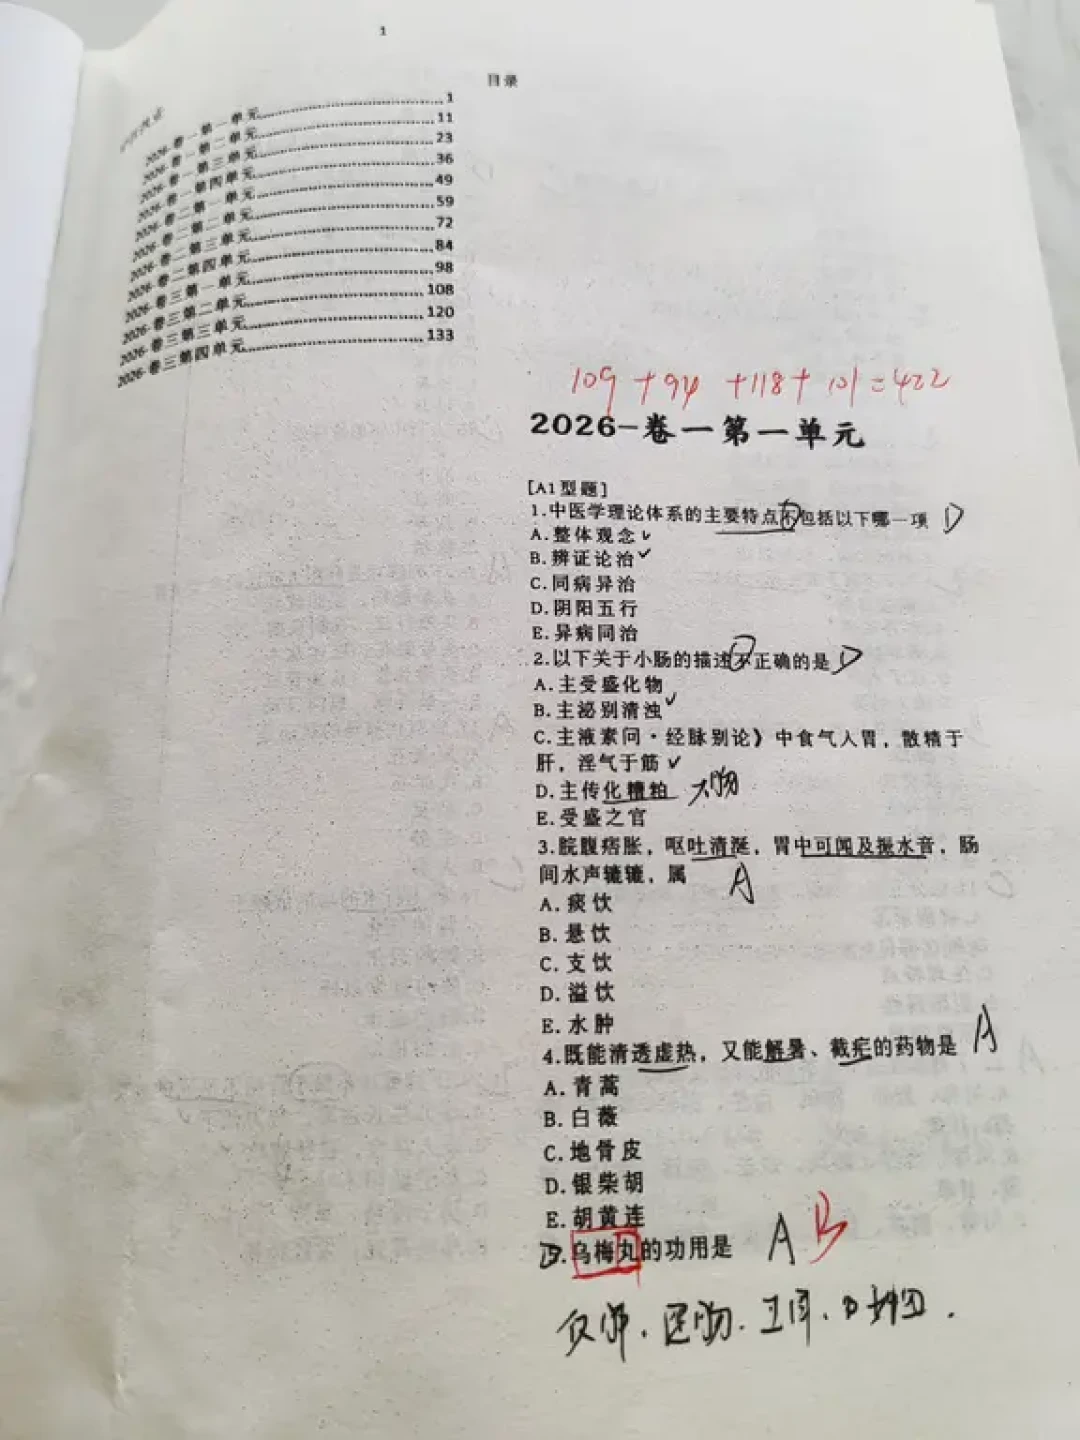 1
目录
2026-卷一第一单元 1
2026-卷一第二单元 11
2026-卷一第三单元 23
2026-卷一第四单元 36
2026-卷二第一单元 49
2026-卷二第二单元 59
2026-卷二第三单元 72
2026-卷二第四单元 84
2026-卷三第一单元 98
2026-卷三第二单元 108
2026-卷三第三单元 120
2026-卷三第四单元 133
109+94+118+101=422
2026-卷一第一单元
[A1型题]
1.中医学理论体系的主要特点不包括以下哪一项 D
A.整体观念
B.辨证论治
C.同病异治
D.阴阳五行
E.异病同治
2.以下关于小肠的描述不正确的是 D
A.主受盛化物
B.主泌别清浊
C.主液素问·经脉别论》中食气人胃，散精于
肝，淫气于筋
D.主传化糟粕 大肠
E.受盛之官
3.脘腹痞胀，呕吐清涎，胃中可闻及振水音，肠
间水声辘辘，属 A
A.痰饮
B.悬饮
C.支饮
D.溢饮
E.水肿
4.既能清透虚热，又能解暑、截疟的药物是 A
A.青蒿
B.白薇
C.地骨皮
D.银柴胡
E.胡黄连
5.乌梅丸的功用是 A B